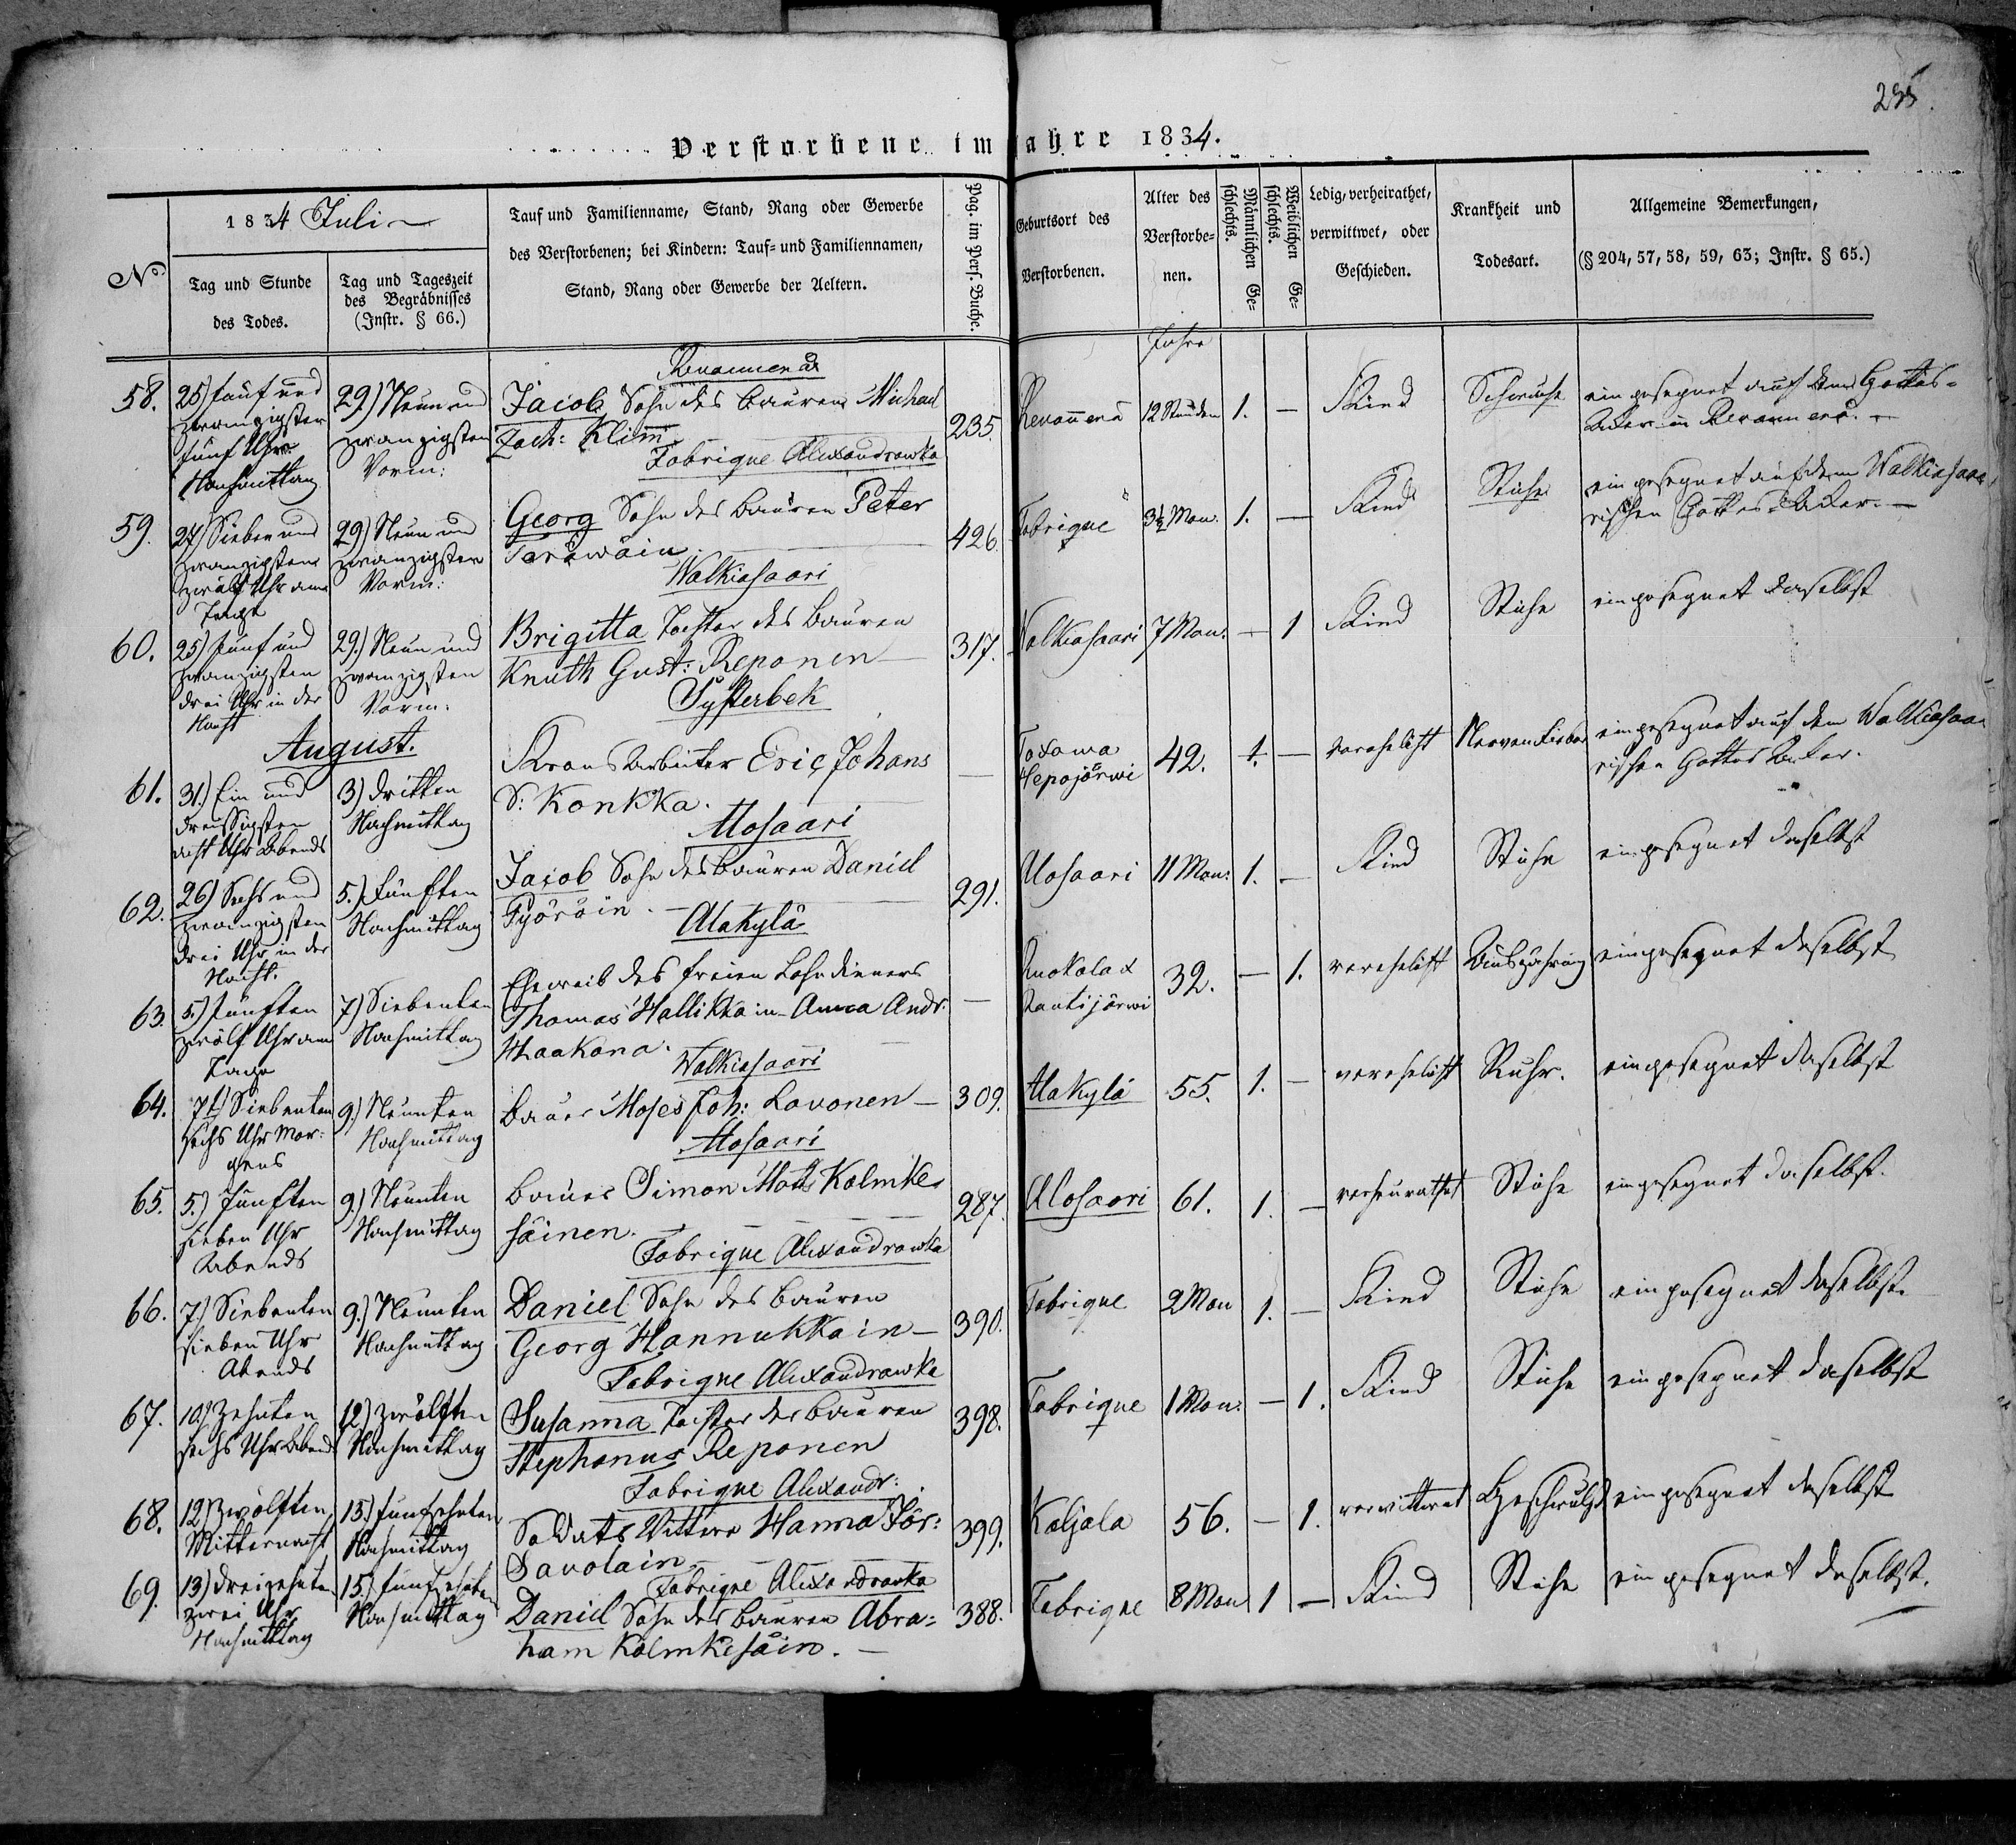 235.
Verstorbene im Jahre 1834.
N.
1834 Juli
Tag und Stunde
des Todes.
Tag und Tageszeit
des Begräbnisses
(Instr. § 66.)
Tauf und Familienname, Stand, Rang oder Gewerbe
des Verstorbenen; bei Kindern: Tauf- und Familiennamen,
Stand, Rang oder Gewerbe der Aeltern.
Pag. im Pers. Buche.
Geburtsort des
Verstorbenen.
Alter des
Verstorbe-
nen.
Männlichen Ge-
schlechts.
Weiblichen Ge-
schlechts.
Ledig, verheirathet,
verwittwet, oder
Geschieden.
Krankheit und
Todesart.
Allgemeine Bemerkungen,
(§ 204, 57, 58, 59, 63; Instr. § 65.)
Jahre
58.
25) fünf und
zwanzigsten
fünf Uhr
Nachmittag
29.) Neun und
zwanzigsten
Vorm:
Jacob Sohn des Bauren Michael
Zach: Klim
235.
12 Stunden
1. —
Kind
Schwäche
eingesegnet auf dem Gottes-
Acker in
Fabrique Alexandrowka
59.
27) Sieben und
zwanzigsten
zwölf Uhr am
Tage
29) Neun und
zwanzigsten
Vorm:
Georg Sohn des Bauren Peter
Teräwäin
426.
Fabrique
3½ Mon.
1. —
Kind
Stühe
eingesegnet auf dem Walkiasaa-
rischen Gottes-Acker. —
Walkiasaari
60.
25) Fünf und
zwanzigsten
drei Uhr in der
Nacht
29.) Neun und
zwanzigsten
Vorm:
Brigitta Tochter des Bauren
Knuth Gust: Reponen —
317.
Walkiasaari
7 Mon:
— 1
Kind
Stühe
eingesegnet daselbst
Systerbek
August.
61.
31.) Ein und
dreissigsten
acht Uhr Abends
3) dritten
Nachmittag
Krons Arbeiter Eric Johans
S: Konkka.
—
Toxowa
Hepojärwi
42.
1. —
verehelicht
Nervenfieber
eingesegnet auf dem Walkiasaa-
rischen Gottes Acker.
Alosaari
62.
26) Sechs und
zwanzigsten
drei Uhr in der
Nacht.
5.) Fünften
Nachmittag
Jacob Sohn des Bauren Daniel
Pyöräin.
291.
Alosaari
11 Mon:
1. —
Kind
Stühe
eingesegnet daselbst
Alakylä
63.
5.) Fünften
zwölf Uhr am
Tage
7) Siebenten
Nachmittag
Eheweib des freien Lohndieners
Thomas Hallikkain — Anna Andr:
Haakana.
—
Ruokolax
Rautijärwi
32.
— 1.
verehelicht
Auszehrung
eingesegnet daselbst
Walkiasaari
64.
7.) Siebenten
sechs Uhr Mor-
gens
9.) Neunten
Nachmittag
Bauer Moses Joh: Lavonen —
309.
Alakylä
55.
1. —
verehelicht
Ruhr.
eingesegnet daselbst
Alosaari
65.
5.) Fünften
sieben Uhr
Abends
9.) Neunten
Nachmittag
Bauer Simon Mats Kolmke-
säinen.
287.
Alosaari
61.
1. —
verheurathet
Stühe
eingesegnet daselbst.
Fabrique Alexandrowka
66.
7.) Siebenten
sieben Uhr
Abends
9.) Neunten
Nachmittag
Daniel Sohn des Bauren
Georg Hannukkain —
390.
Fabrique
2 Mon
1. —
Kind
Stühe
eingesegnet daselbst.
Fabrique Alexandrowka
67.
10.) Zehnten
sechs Uhr Abend
12) zwölften
Nachmittag
Susanna Tochter des Bauren
Stephanus Reponen
398.
Fabrique
1 Mon:
— 1.
Kind
Stühe
eingesegnet daselbst
Fabrique Alexandr:
68.
12) Zwölften
Mitternacht
15.) Fünfzehnten
Nachmittag
Soldats Wittwe Hanna Jör:
Savolain
399.
Kaljala
56.
— 1.
verwittwet
Geschwulst
eingesegnet daselbst
Fabrique Alexandrowka
69.
13) dreizehnten
zwei Uhr
Nachmittag
15.) fünfzehnten
Nachmittag
Daniel Sohn des Bauren Abra-
ham Kolmkesäin. —
388.
Fabrique
8 Mon
1 —
Kind
Stühe
eingesegnet daselbst.